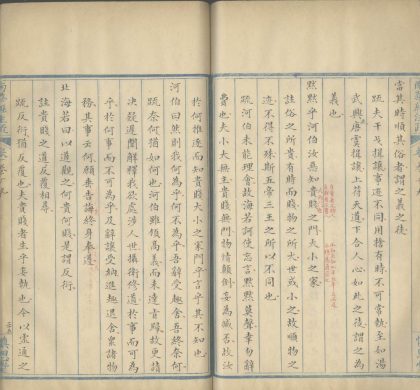 當其時順其俗者謂之義之徒
疏夫干戈揖讓事迹不同用捨有時不可常執至如湯
武興唐虞揖讓上符天道下合人心如此之徒謂之為
義也
默默乎河伯汝惡知貴賤之門大小之家
註俗之所貴有時而賤物之所大世或小之故順物之
迹不得不殊斯五帝三王之所以不同也
疏河伯未能理會故海若訶使忘言默默莫聲幸勿辭
費也夫小大無主貴賤無門物情顛倒妄為臧否故汝
於何推逐而知貴賤大小之家門乎言乎其不知也
河伯曰然則我何為乎何不為乎吾辭受趣舍吾終奈何
疏奈何猶如何也河伯雖領高義而未達旨歸故更請
決疑遲聞解釋我欲處涉人世攝衛修道於何事而可為
乎於何事而不可為乎及辭讓受納進趣退舍衆諸物
務其事云何願垂告誨終身奉遵
北海若曰以道觀之何貴何賤是謂反衍
註貴賤之道反覆相尋
疏反衍猶反覆也夫貴賤者生乎妄執也今以虛通之